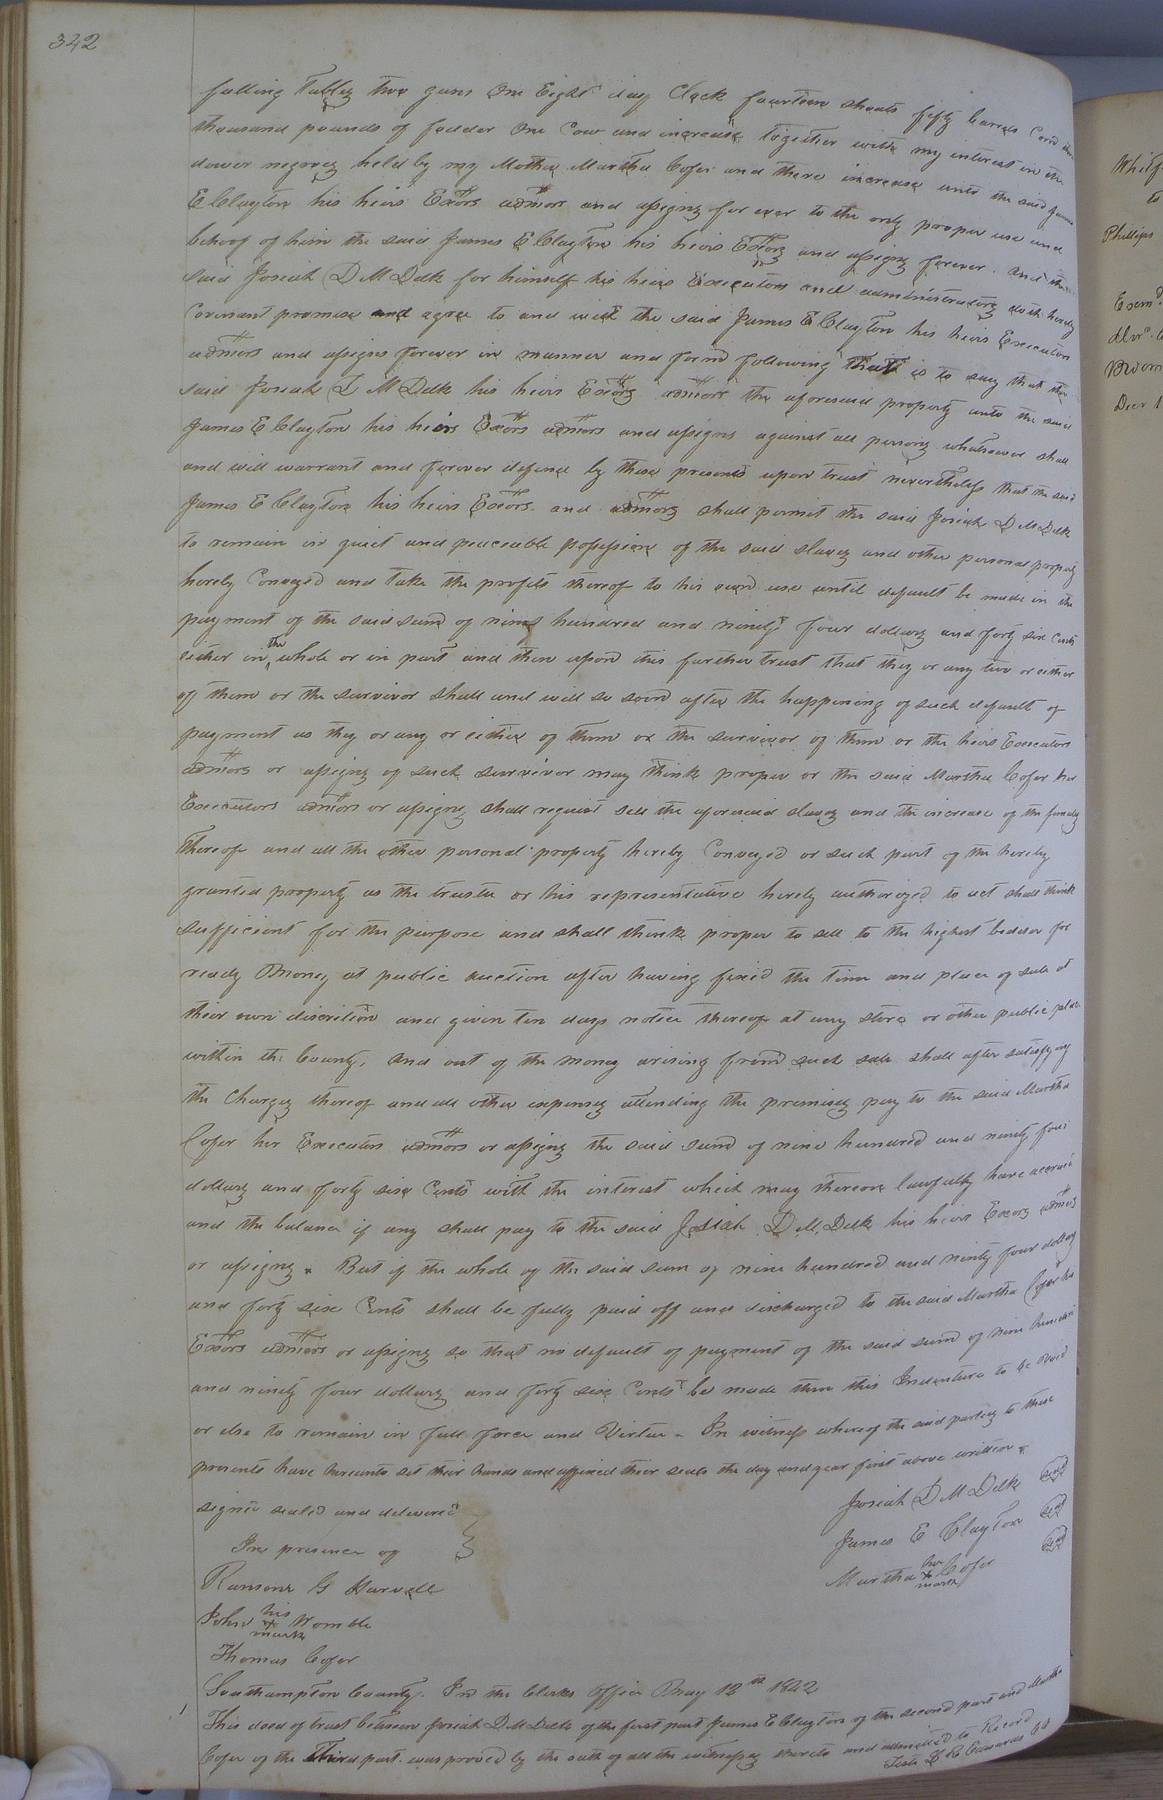 342
falling Tables two guns One Eight day Clock fourteen shoats fifty barrels Corn
thousand pounds of fodder One Cow and increase together with my interest in the
dower negroes held by my Mother Martha Cofer and there increase unto the said James
E Clayton his heirs Exors admors and assigns for ever to the only proper use and
behoof of him the said James E Clayton his heirs Exors and assigns forever. And the
said Josiah D M Delk for himself his heirs Executors and administrators doth hereby
Covenant promise and agree to and with the said James E Clayton his heirs Executors
admors and assigns forever in manner and form following That is to say that the
said Josiah D M Delk his heirs Exors admors the aforesaid property unto the said
James E Clayton his heirs Exors admors and assigns against all persons whatsoever shall
and will warrant and forever defend by these presents upon trust nevertheless that the said
James E Clayton his heirs Exors. and admors shall permit the said Josiah D M Delk
to remain in quiet and peaceable possession of the said slaves and other personal property
hereby Conveyed and take the profits thereof to his own use until default be made in the
payment of the said sum of nine hundred and ninety four dollars and forty six Cents
either in the whole or in part and then upon this further trust that they or any two or either
of them or the survivor shall and will so soon after the happening of such default of
payment as they or any or either of them or the survivor of them or the heirs Executors
admors or assigns of such survivor may think proper or the said Martha Cofer her
Executors admors or assigns shall request sell the aforesaid slaves and the increase of the females
Thereof and all the other personal property hereby Conveyed or such part of the hereby
granted property as the trustee or his representative hereby authorized to act shall think
sufficient for the purpose and shall think proper to sell to the highest bidder for
ready Money at public auction after having fixed the time and place of sale at
their own discretion and given ten days notice thereof at any store or other public place
within the County, and out of the money arising from such sale shall after satisfying
the Charges thereof and all other expenses attending the premises pay to the said Martha
Cofer her Executors admors or assigns the said sum of nine hundred and ninety four
dollars and forty six Cents with the interest which may thereon lawfully have accrued
and the balance if any shall pay to the said Josiah D.M. Delk his heirs Exors admors
or assigns. But if the whole of the said sum of nine hundred and ninety four dollars
and forty six Cents shall be fully paid off and discharged to the said Martha Cofer her
Exors admors or assigns so that no default of payment of the said sum of nine hundred
and ninety four dollars and forty six Cents be made then this Indenture to be void
or else to remain in full force and Virtue - In witness whereof the said parties to these
presents have hereunto set their hands and affixed their seals the day and year first above written.
signed sealed and delivered
In presence of
Josiah D M Delk Seal
James E Clayton Seal
Martha her X mark Cofer Seal
Ransone G Harvell
John his X mark Womble
Thomas Cofer
Southampton County. In the Clerks Office May 12th 1842
This deed of trust between Josiah D M Delk of the first part James E Clayton of the second part and Martha
Cofer of the Third part was proved by the oath of all the witnesses thereto and admitted to Record
Teste L R Edwards Clk
Phillips